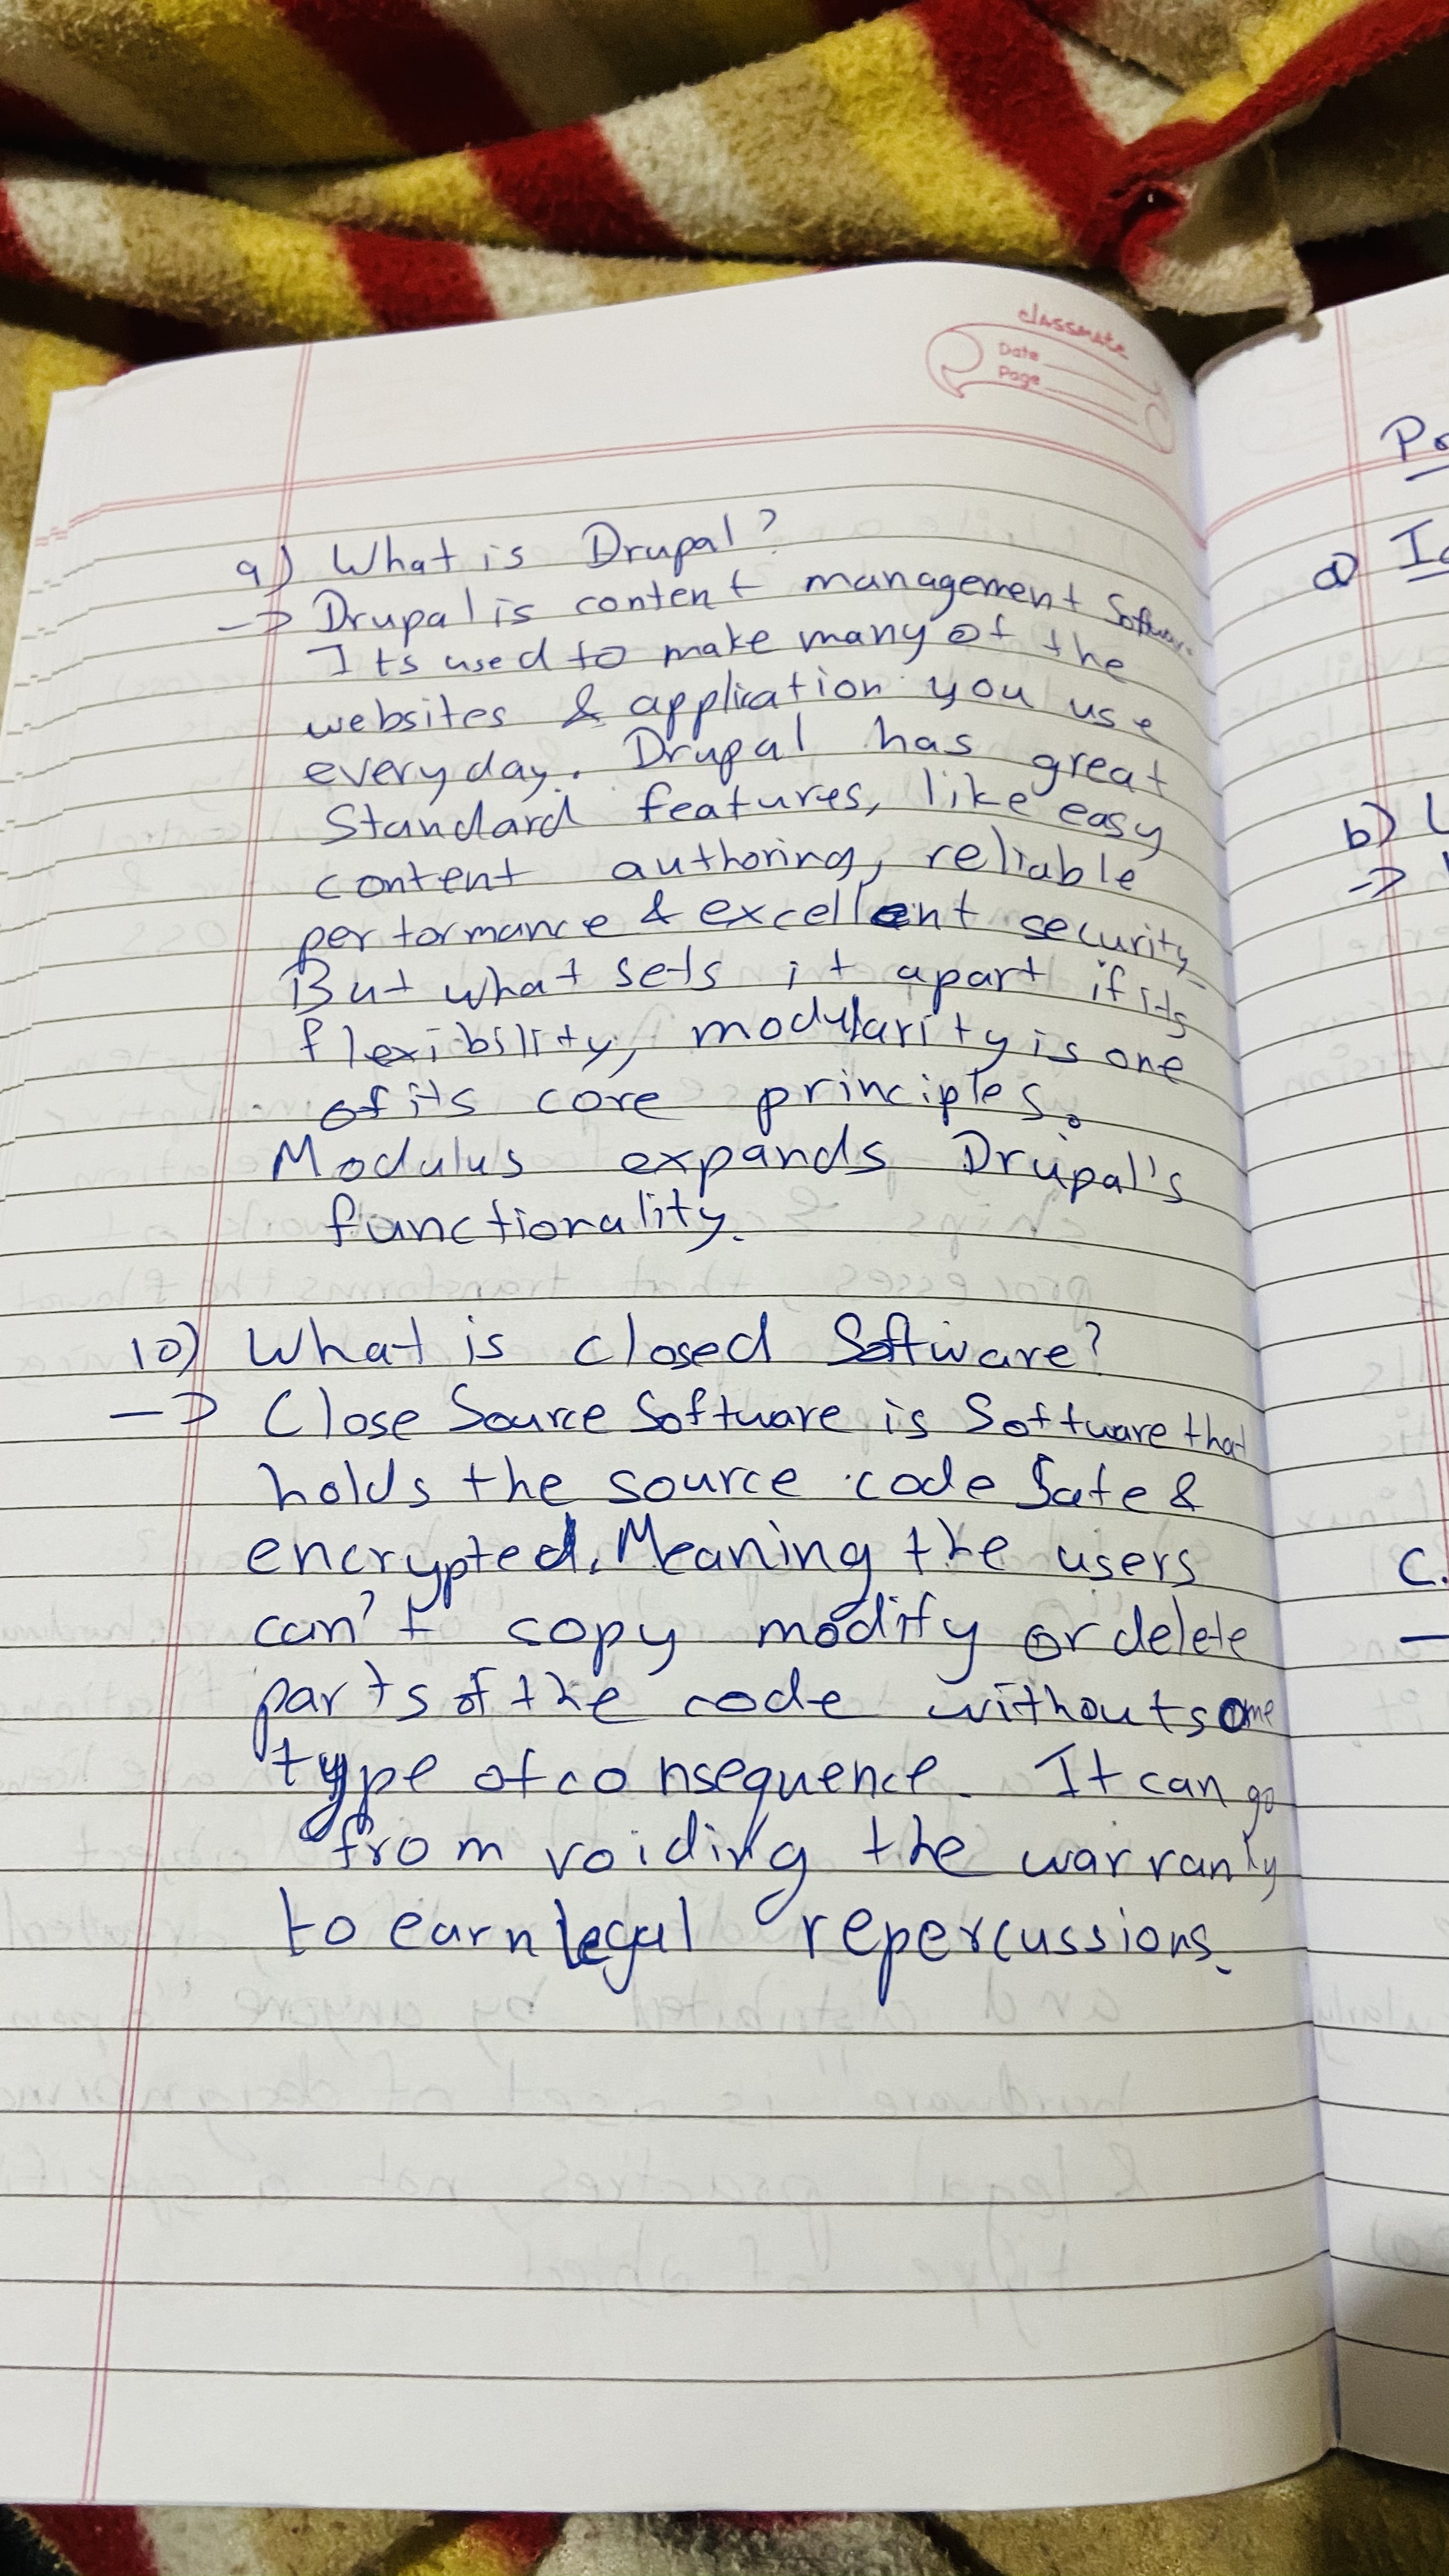 classmate
Date
Page
9) What is Drupal?
-> Drupal is content management Software.
Its used to make many of the
websites & application you use
everyday. Drupal has great
Standard features, like easy
content authoring, reliable
performance & excellent security
But what sets it apart if its
flexibility, modularity is one
of its core principles.
Modulus expands Drupal's
functionality.
10) What is closed Software?
-> Close Source Software is Software that
holds the source code Safe &
encrypted. Meaning the users
can't copy modify or delete
parts of the code without some
type of consequence. It can go
from voiding the warranty
to earn legal repercussions.
a)
b)
->
C.